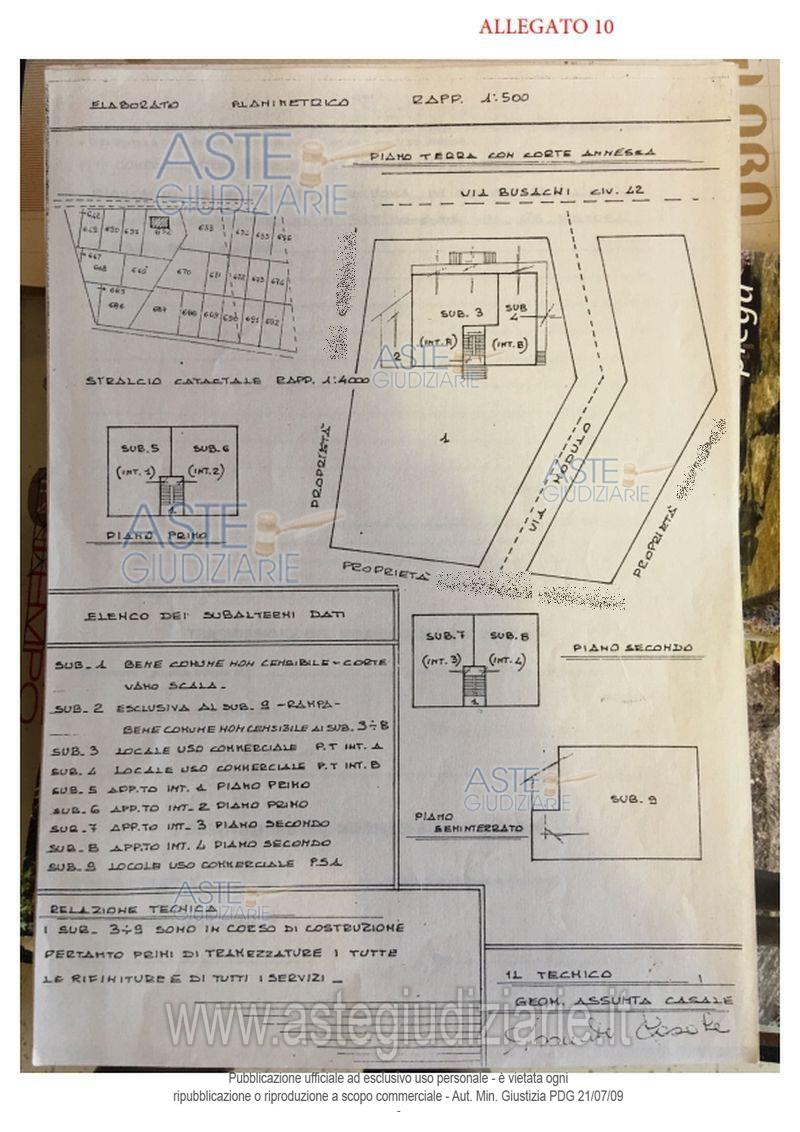 ALLEGATO 10
ELABORATO PLANIMETRICO RAPP. 1:500
PIANO TERRA CON CORTE ANNESSA
VIA BUSACHI CIV. 42
ASTE
GIUDIZIARIE
648
649 650 651 653 654 655 656
667
668 669 670 671 672 673 674
685
686 687 688 689 690 691 692
STRALCIO CATASTALE RAPP. 1:4000
SUB. 3
(INT. A)
SUB 4
(INT. B)
2
1
ASTE
GIUDIZIARIE
PROPRIETÀ
VIA NODULO
PROPRIETÀ
PROPRIETÀ
ASTE
GIUDIZIARIE
SUB. 5 SUB. 6
(INT. 1) (INT. 2)
1
PIANO PRIMO
ASTE
GIUDIZIARIE
ELENCO DEI SUBALTERNI DATI
SUB. 1 BENE COMUNE NON CENSIBILE - CORTE
VANO SCALA -
SUB. 2 ESCLUSIVA AL SUB. 9 - RAMPA -
BENE COMUNE NON CENSIBILE AI SUB. 3÷8
SUB. 3 LOCALE USO COMMERCIALE P.T INT. A
SUB. 4 LOCALE USO COMMERCIALE P.T INT. B
SUB. 5 APP.TO INT. 1 PIANO PRIMO
SUB. 6 APP.TO INT. 2 PIANO PRIMO
SUB. 7 APP.TO INT. 3 PIANO SECONDO
SUB. 8 APP.TO INT. 4 PIANO SECONDO
SUB. 9 LOCALE USO COMMERCIALE P.S1
SUB. 7 SUB. 8
(INT. 3) (INT. 4)
1
PIANO SECONDO
SUB. 9
PIANO
SEMINTERRATO
ASTE
GIUDIZIARIE
ASTE
GIUDIZIARIE
RELAZIONE TECNICA
I SUB. 3÷9 SONO IN CORSO DI COSTRUZIONE
PERTANTO PRIMI DI TRAMEZZATURE I TUTTE
LE RIFINITURE E DI TUTTI I SERVIZI -
IL TECNICO
GEOM. ASSUNTA CASALE
Assunta Casale
www.astegiudiziarie.it
Pubblicazione ufficiale ad esclusivo uso personale - è vietata ogni
ripubblicazione o riproduzione a scopo commerciale - Aut. Min. Giustizia PDG 21/07/09
-